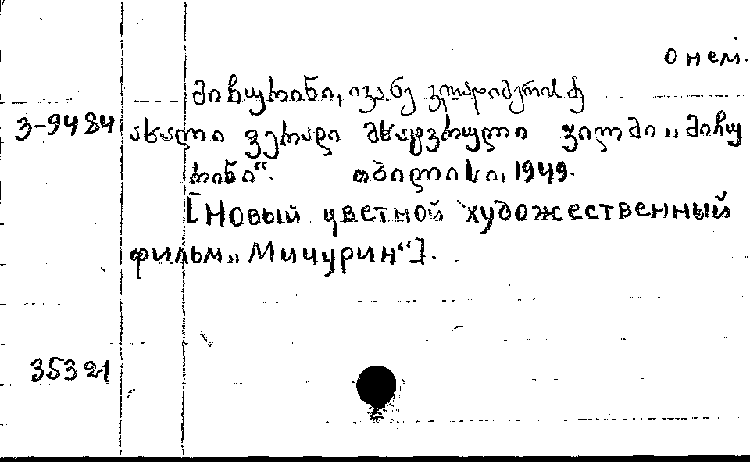 о нем.
მიჩურინი, ივანე ვლადიმერის ძე
3-9484 ახალი ფერადი მხატვრული ფილმი „მიჩუ
რინი“. თბილისი, 1949.
[Новый цветной художественный
фильм „Мичурин“].
35321